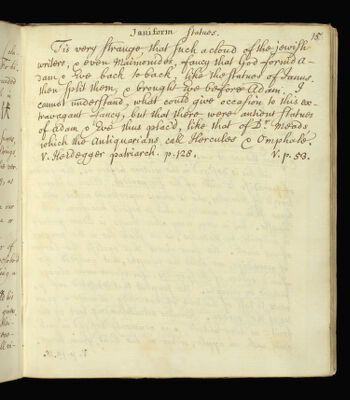 Janiform statues.
15
Tis very strange, that such a cloud of the jewish
writers, & even Maimonides, fancy that God formd A-
dam & Eve back to back, like the statues of Janus.
then split them, & brought Eve before Adam. I
cannot understand, what could give occasion to this ex-
travagant fancy, but that there were antient statues
of Adam & Eve thus plac'd, like that of Dr. Meads,
which the Antiquarians call Hercules & Omphale.
V. Heidegger patriarch. p. 128. V. p. 53.